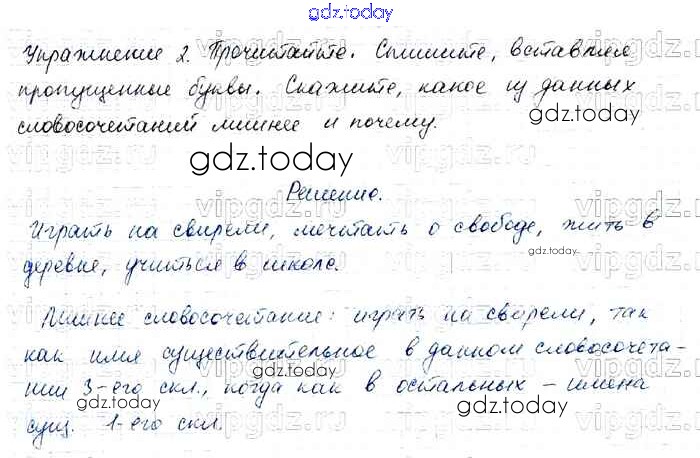 gdz.today
Упражнение 2. Прочитайте. Спишите, вставляя
пропущенные буквы. Скажите, какое из данных
словосочетаний лишнее и почему.
gdz.today
gdz.today
Решение.
Играть на свирели, мечтать о свободе, жить в
gdz.today
деревне, учиться в школе.
Лишнее словосочетание: играть на свирели, так
как имя существительное в данном словосочета-
нии 3-его скл., когда как в остальных – имена
gdz.today
gdz.today
сущ. 1-его скл.